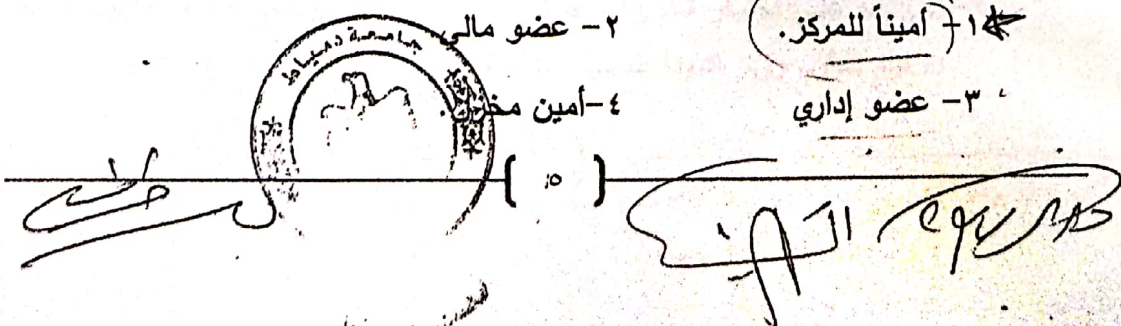 ١- أميناً للمركز. ٢- عضو مالي
٣- عضو إداري ٤- أمين مخزن.
جامعة دمياط
[ ١٥ ]